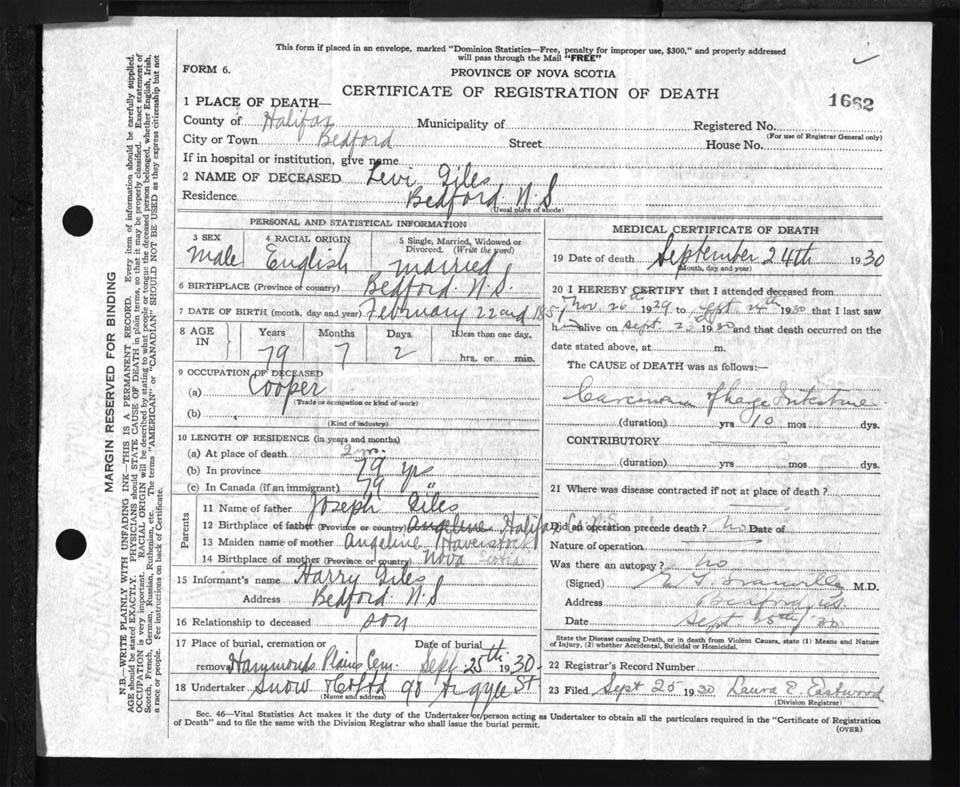 This form if placed in an envelope, marked "Dominion Statistics—Free, penalty for improper use, $300," and properly addressed
will pass through the Mail "FREE"
FORM 6.
PROVINCE OF NOVA SCOTIA
CERTIFICATE OF REGISTRATION OF DEATH
1662
1 PLACE OF DEATH—
County of Halifax Municipality of Registered No.
(For use of Registrar General only)
City or Town Bedford Street House No.
If in hospital or institution, give name
2 NAME OF DECEASED Levi Giles
Residence Bedford N.S
(Usual place of abode)
PERSONAL AND STATISTICAL INFORMATION
3 SEX 4 RACIAL ORIGIN 5 Single, Married, Widowed or Divorced. (Write the word)
Male English married
6 BIRTHPLACE (Province or country) Bedford. N.S.
7 DATE OF BIRTH (month, day and year) February 22nd 1851
8 AGE IN Years Months Days If less than one day,
79 7 2 hrs. or min.
9 OCCUPATION OF DECEASED
(a) Cooper
(Trade or occupation or kind of work)
(b)
(Kind of industry)
10 LENGTH OF RESIDENCE (in years and months)
(a) At place of death 2 m.
(b) In province 79 yrs
(c) In Canada (if an immigrant) 79 "
Parents
11 Name of father Joseph Giles
12 Birthplace of father (Province or country) Angeline Halifax
13 Maiden name of mother Angeline Haverstock
14 Birthplace of mother (Province or country) Nova Scotia
15 Informant's name Harry Giles
Address Bedford. N.S
16 Relationship to deceased son
17 Place of burial, cremation or removal Hammonds Plains Cem. Date of burial Sept. 25th 1930
18 Undertaker Snow & Co Ltd 90 Argyle St
(Name and address)
MEDICAL CERTIFICATE OF DEATH
19 Date of death September 24th 1930
(Month, day and year)
20 I HEREBY CERTIFY that I attended deceased from
Nov. 26th 1929 to Sept 24th 1930 that I last saw
h alive on Sept. 23 1930 and that death occurred on the
date stated above, at m.
The CAUSE of DEATH was as follows:—
Carcinoma of Large Intestine
(duration) yrs 10 mos. dys.
CONTRIBUTORY
(duration) yrs mos. dys.
21 Where was disease contracted if not at place of death?
Did an operation precede death? no Date of
Nature of operation
Was there an autopsy? no
(Signed) M.D.
Address Bedford, N.S
Date Sept 25th 30
State the Disease causing Death, or in death from Violent Causes, state (1) Means and Nature
of Injury, (2) whether Accidental, Suicidal or Homicidal.
22 Registrar's Record Number
23 Filed Sept 25 1930 Laura E. Eastwood
(Division Registrar)
Sec. 46—Vital Statistics Act makes it the duty of the Undertaker or person acting as Undertaker to obtain all the particulars required in the "Certificate of Registration
of Death" and to file the same with the Division Registrar who shall issue the burial permit.
(OVER)
MARGIN RESERVED FOR BINDING
N.B.—WRITE PLAINLY WITH UNFADING INK—THIS IS A PERMANENT RECORD. Every item of information should be carefully supplied.
AGE should be stated EXACTLY. PHYSICIANS should STATE CAUSE OF DEATH in plain terms, so that it may be properly classified. Exact statement of
OCCUPATION is very important. RACIAL ORIGIN will be described by stating to what people or tongue the deceased person belonged, whether English, Irish,
Scotch, French, German, Russian, Ruthenian, etc. The terms "AMERICAN" or "CANADIAN" SHOULD NOT BE USED as they express citizenship but not
a race or people. See instructions on back of Certificate.